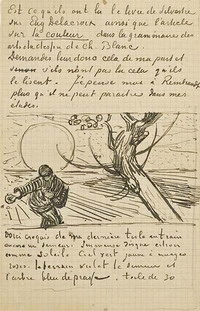 Est ce qu'ils ont lu le livre de Silvestre
sur Eug Delacroix ainsi que l'article
sur la couleur dans la grammaire des
arts du dessin de Ch. Blanc.
Demandez leur donc cela de ma part et
sinon s'ils n'ont pas lu cela qu'ils
le lisent. je pense moi à Rembrandt
plus qu'il ne peut paraitre dans mes
études.
Voici croquis de ma dernière toile en train
encore un semeur. Immense disque citron
comme soleil. Ciel vert jaune à nuages
roses. le terrain violet le semeur et
l'arbre bleu de prusse. toile de 30